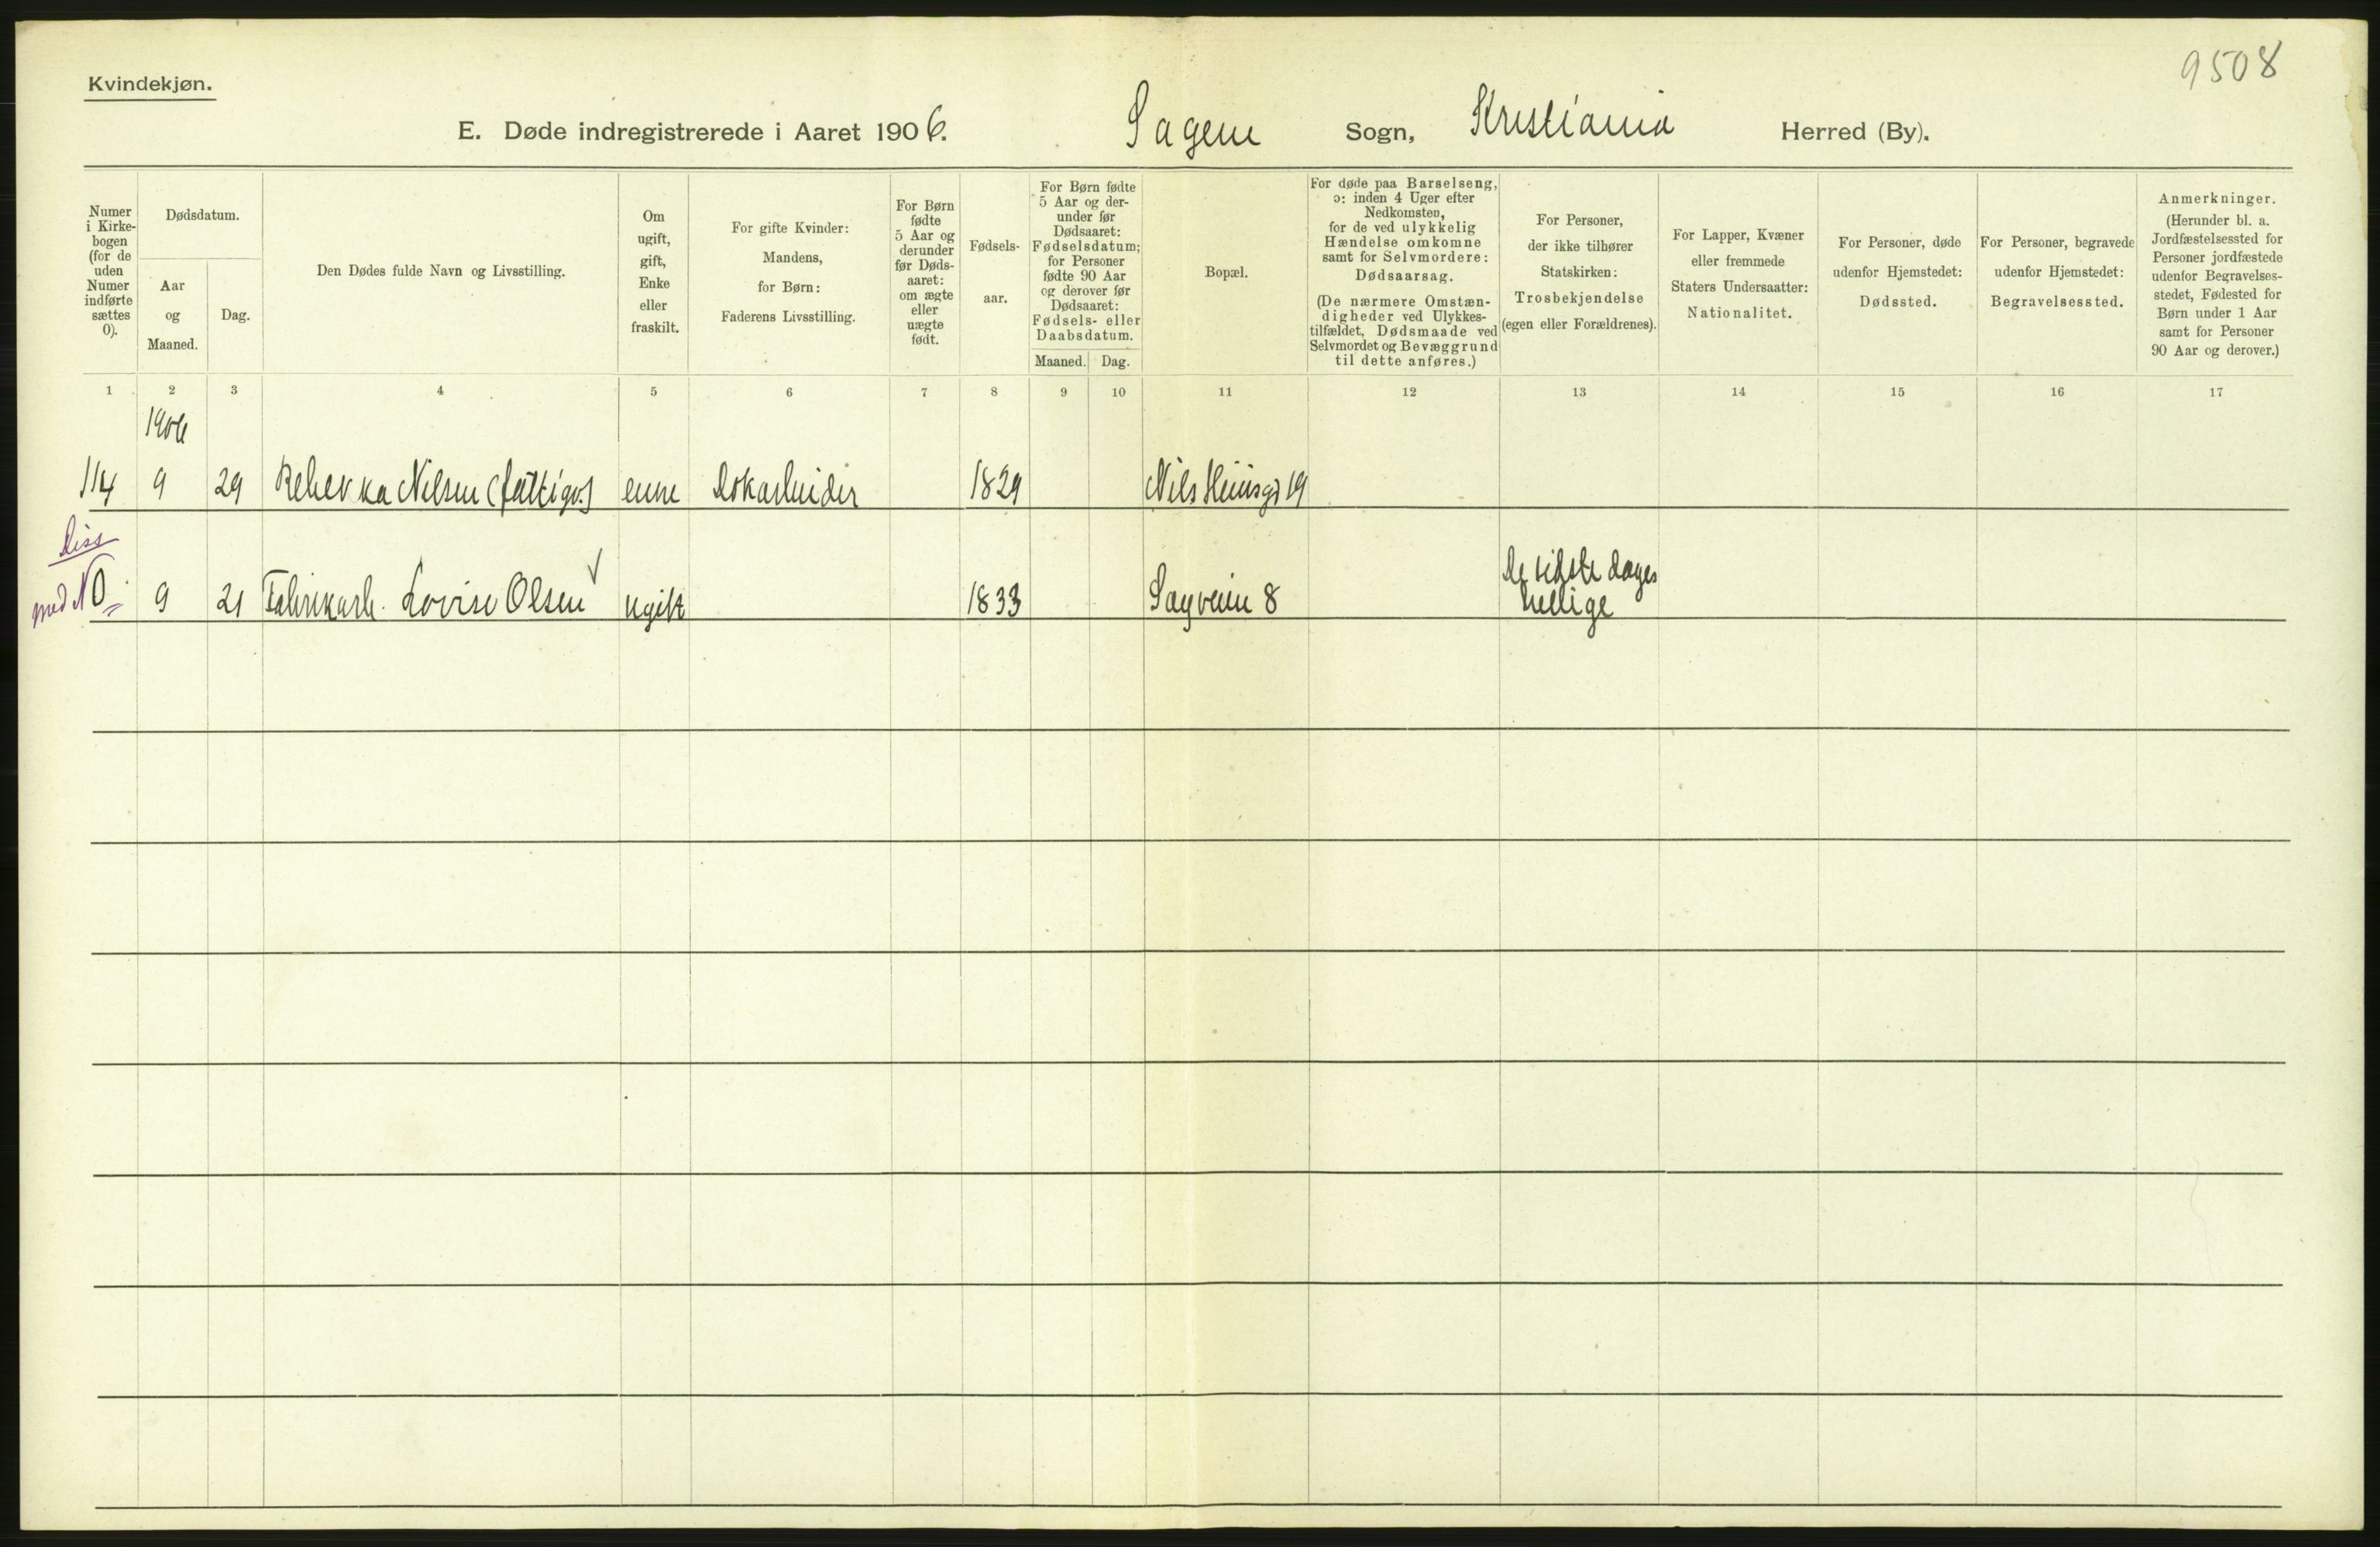 9508
Kvindekjøn.
E. Døde indregistrerede i Aaret 1906. Sagene Sogn, Kristiania Herred (By).
Numer i Kirke-bogen (for de uden Numer indførte sættes 0).
Dødsdatum.
Aar og Maaned.
Dag.
Den Dødes fulde Navn og Livsstilling.
Om ugift, gift, Enke eller fraskilt.
For gifte Kvinder: Mandens, for Børn: Faderens Livsstilling.
For Børn fødte 5 Aar og derunder før Døds-aaret: om ægte eller uægte født.
Fødsels-aar.
For Børn fødte 5 Aar og der-under før Dødsaaret: Fødselsdatum; for Personer fødte 90 Aar og derover før Dødsaaret: Fødsels- eller Daabsdatum.
Maaned. Dag.
Bopæl.
For døde paa Barselseng, ɔ: inden 4 Uger efter Nedkomsten, for de ved ulykkelig Hændelse omkomne samt for Selvmordere: Dødsaarsag.
(De nærmere Omstæn-digheder ved Ulykkes-tilfældet, Dødsmaade ved Selvmordet og Bevæggrund til dette anføres.)
For Personer, der ikke tilhører Statskirken: Trosbekjendelse (egen eller Forældrenes).
For Lapper, Kvæner eller fremmede Staters Undersaatter: Nationalitet.
For Personer, døde udenfor Hjemstedet: Dødssted.
For Personer, begravede udenfor Hjemstedet: Begravelsessted.
Anmerkninger.
(Herunder bl. a. Jordfæstelsessted for Personer jordfæstede udenfor Begravelses-stedet, Fødested for Børn under 1 Aar samt for Personer 90 Aar og derover.)
1 2 3 4 5 6 7 8 9 10 11 12 13 14 15 16 17
1906
114 9 29 Rebekka Nilsen (fattigv.) enke 1829 19
Diss
med N 0. 9 21 Fabrikarb. Lovise Olsen ✓ ugift 1833 Sagveien 8 De sidste dages hellige